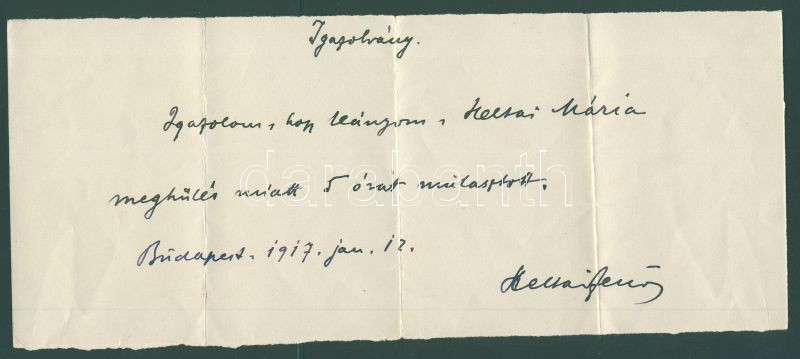 Igazolvány.
Igazolom, hogy leányom, Heltai Mária
meghülés miatt 5 órát mulasztott.
Budapest. 1917. jan. 12.
Heltai Jenő
darabanth